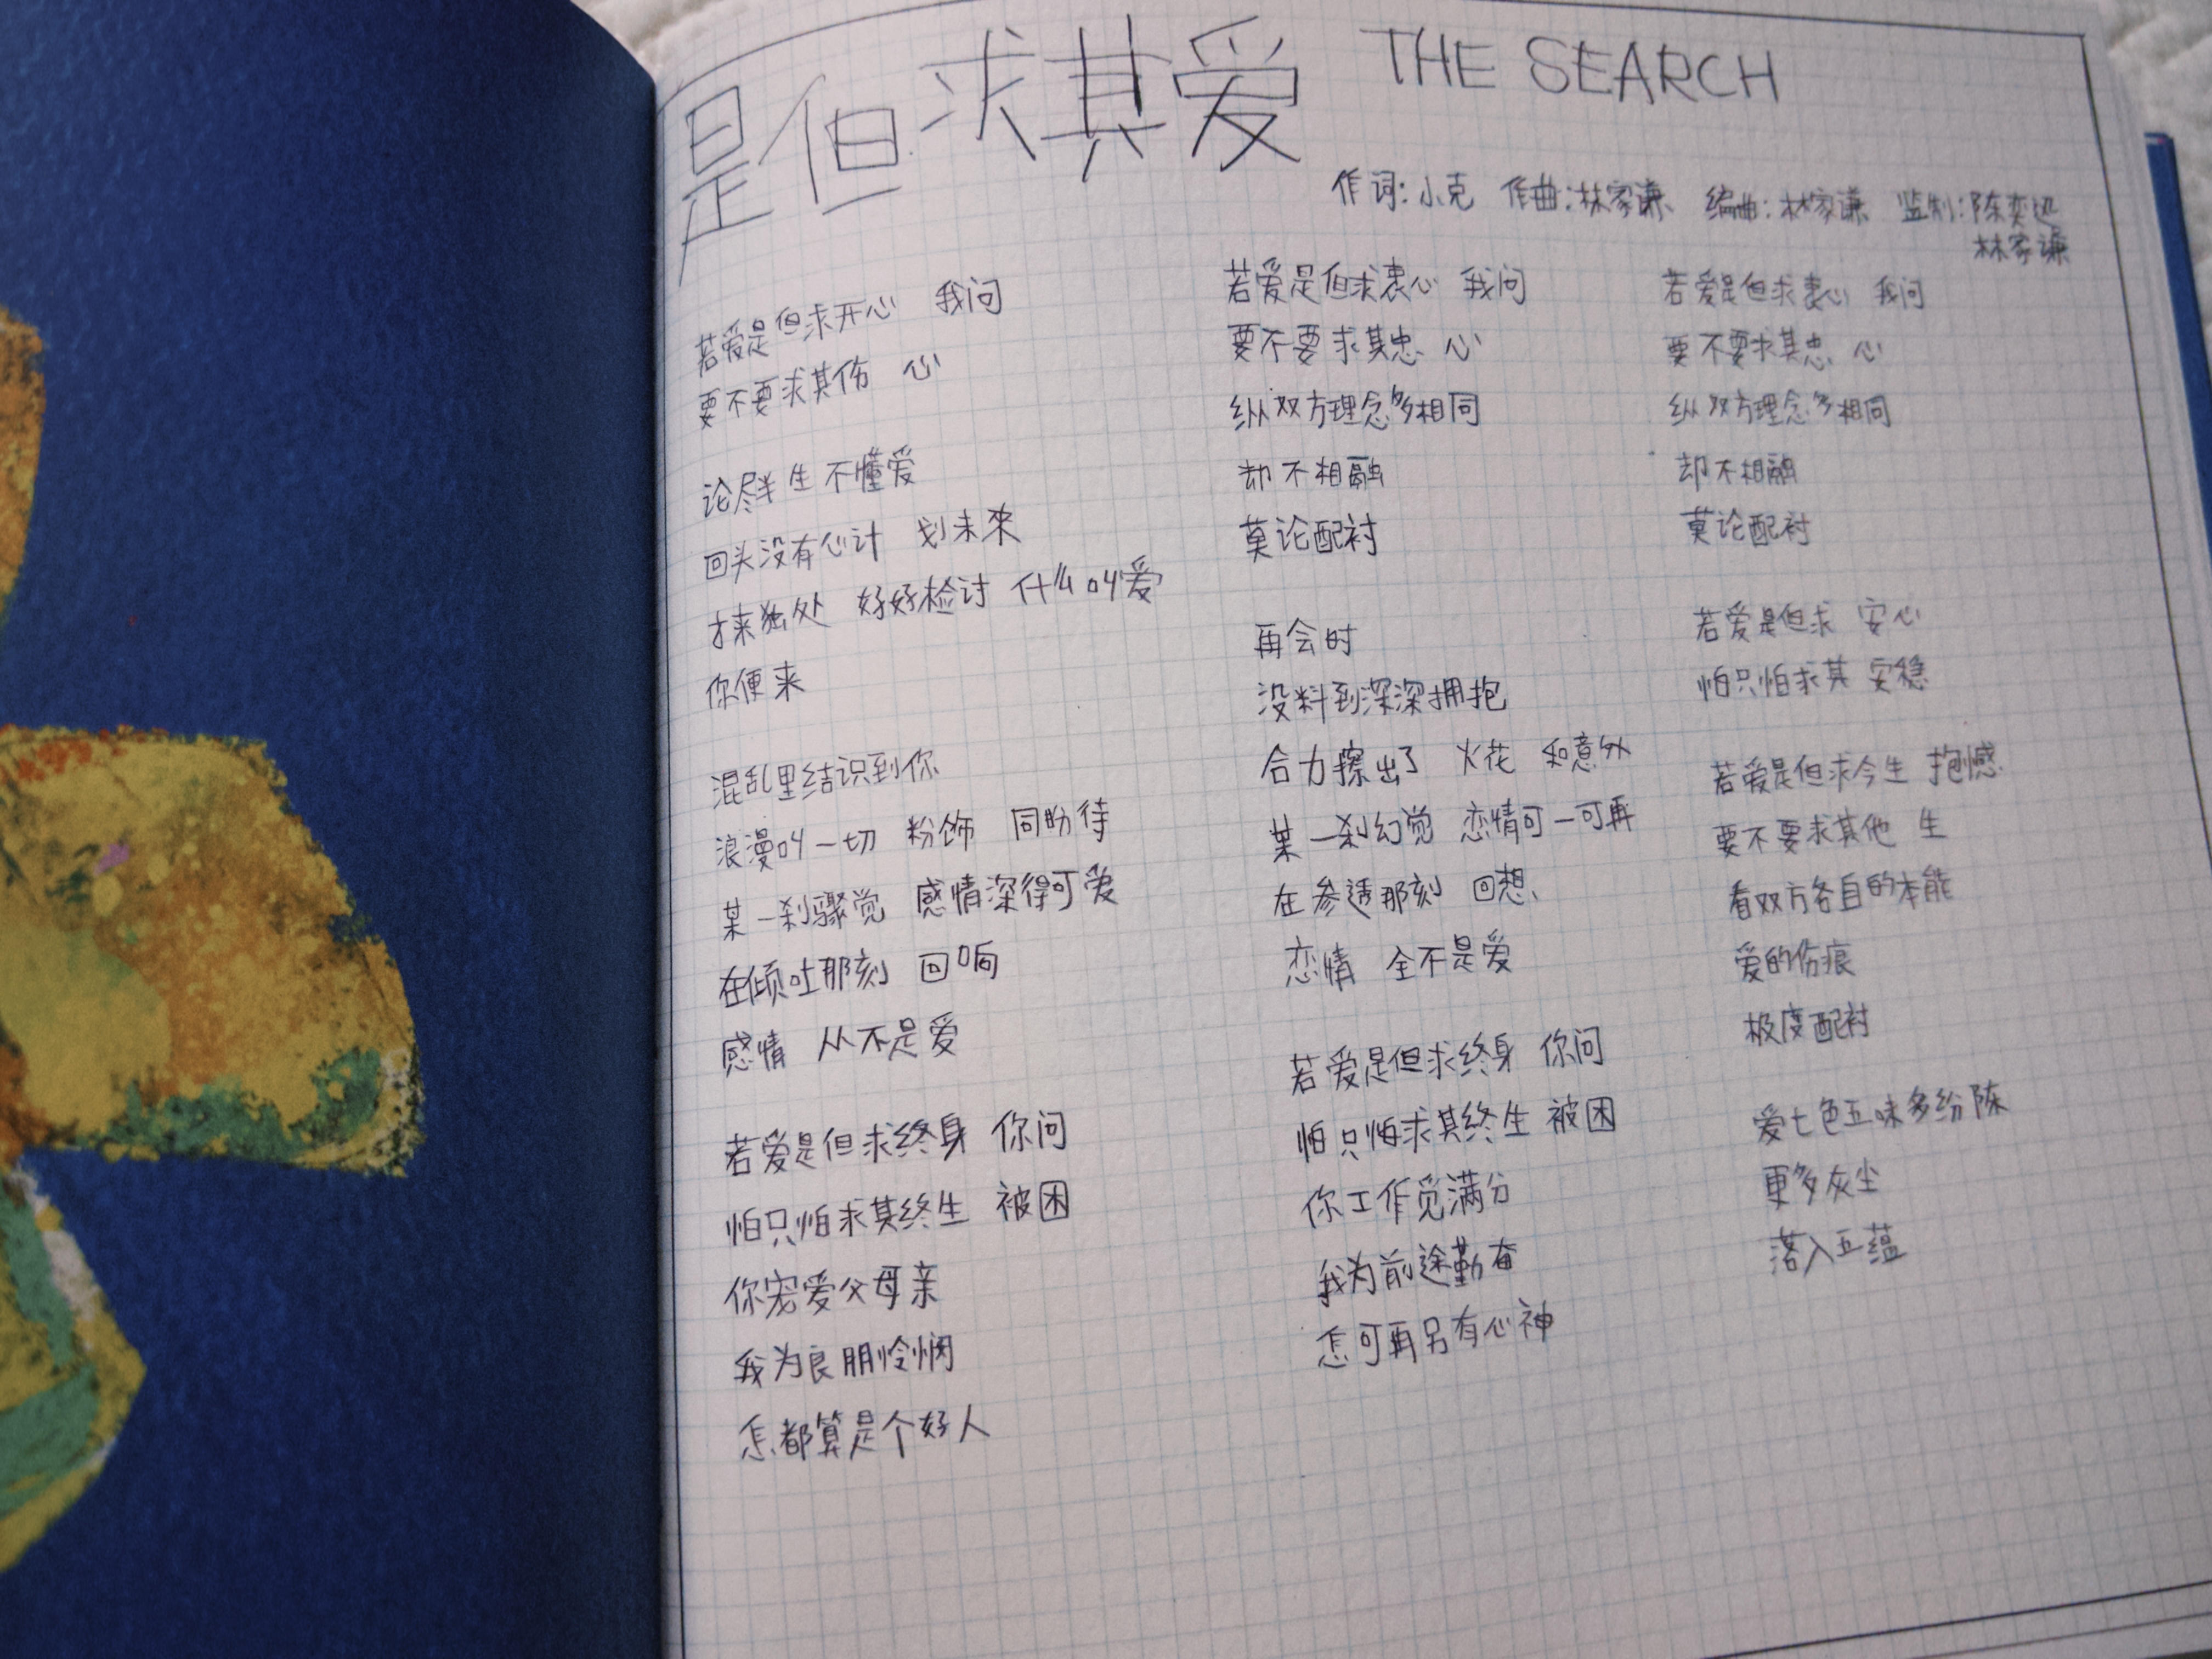 是但求其爱 THE SEARCH
作词:小克 作曲:林家谦 编曲:林家谦 监制:陈奕迅
林家谦
若爱是但求开心 我问
要不要求其伤 心
论尽半生 不懂爱
回头没有心计 划未来
才来独处 好好检讨 什么叫爱
你便来
混乱里结识到你
浪漫叫一切 粉饰 同盼待
某一刹骤觉 感情深得可爱
在倾吐那刻 回响
感情 从不是爱
若爱是但求终身 你问
怕只怕求其终生 被困
你宠爱父母亲
我为良朋怜悯
怎都算是个好人
若爱是但求衷心 我问
要不要求其忠 心
纵双方理念多相同
却不相融
莫论配衬
再会时
没料到深深拥抱
合力擦出了 火花 和意外
某一刹幻觉 恋情可一可再
在参透那刻 回想
恋情 全不是爱
若爱是但求终身 你问
怕只怕求其终生 被困
你工作觅满分
我为前途勤奋
怎可再另有心神
若爱是但求衷心 我问
要不要求其忠 心
纵双方理念多相同
却不相融
莫论配衬
若爱是但求 安心
怕只怕求其 安稳
若爱是但求今生 抱憾
要不要求其他 生
看双方各自的本能
爱的伤痕
极度配衬
爱七色五味多纷陈
更多灰尘
落入五蕴